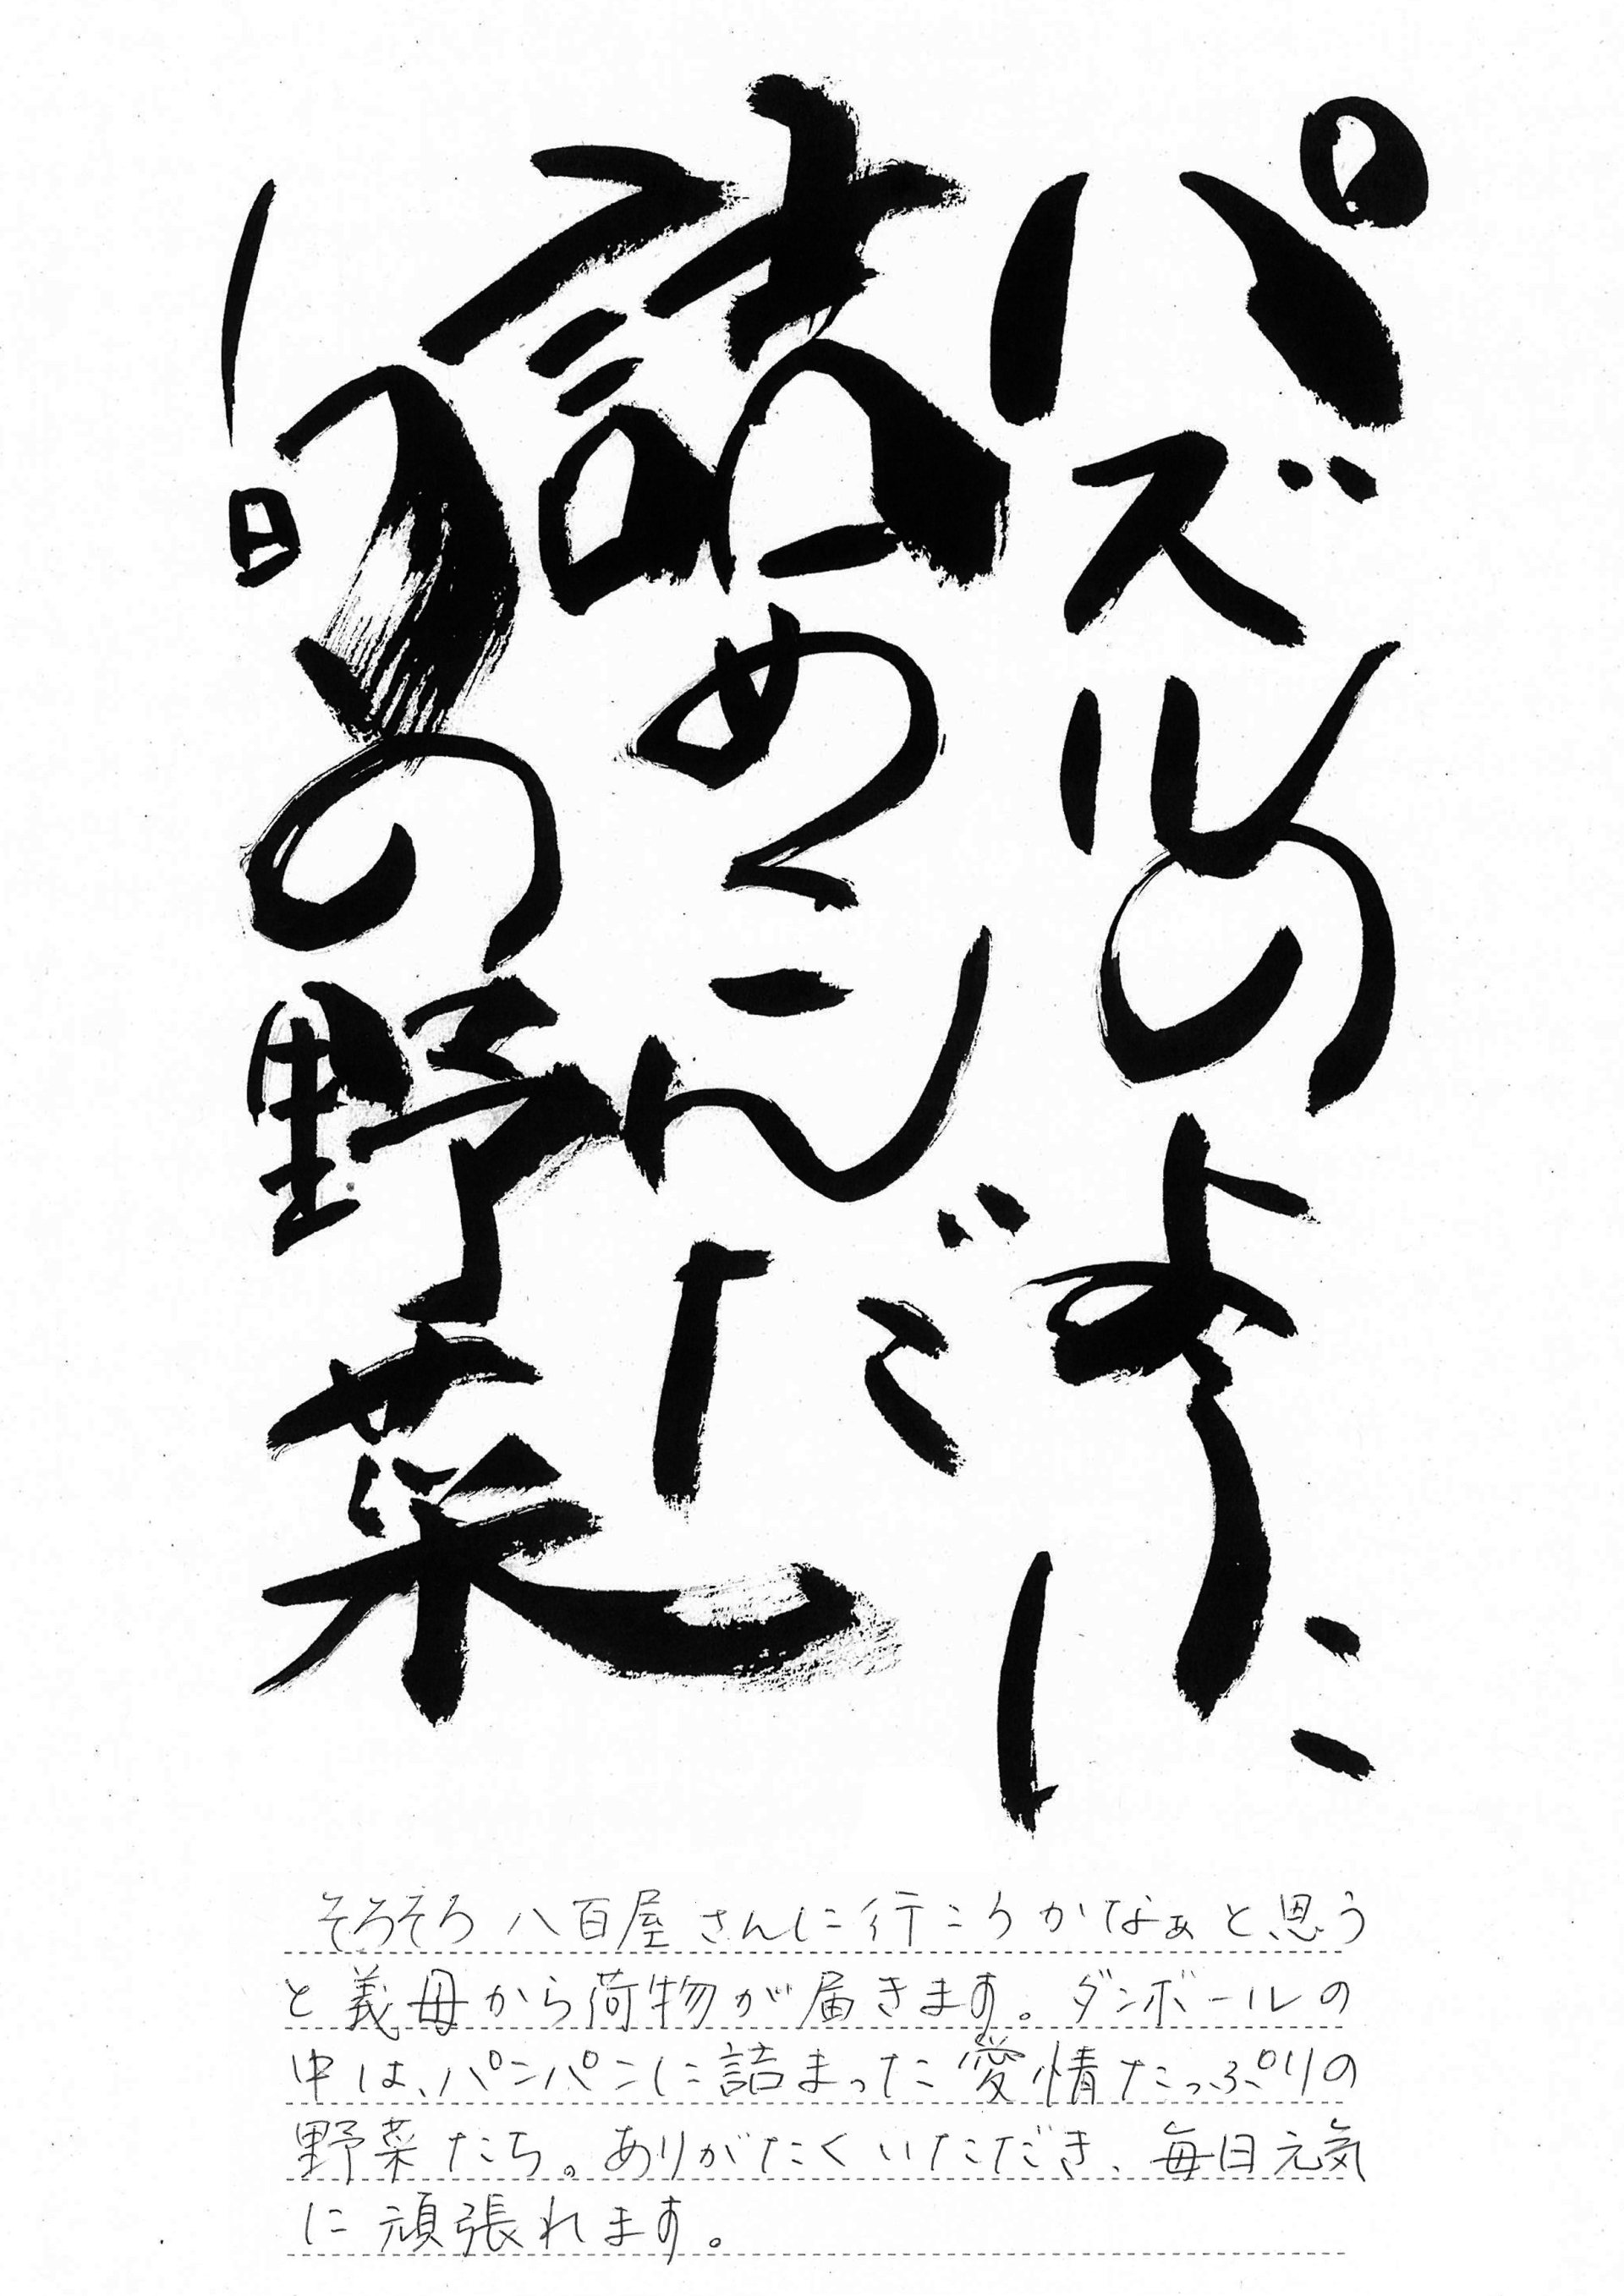 パズルのように
詰めこんだ
旬の野菜
そろそろ八百屋さんに行こうかなぁと思う
と義母から荷物が届きます。ダンボールの
中は、パンパンに詰まった愛情たっぷりの
野菜たち。ありがたくいただき、毎日元気
に頑張れます。